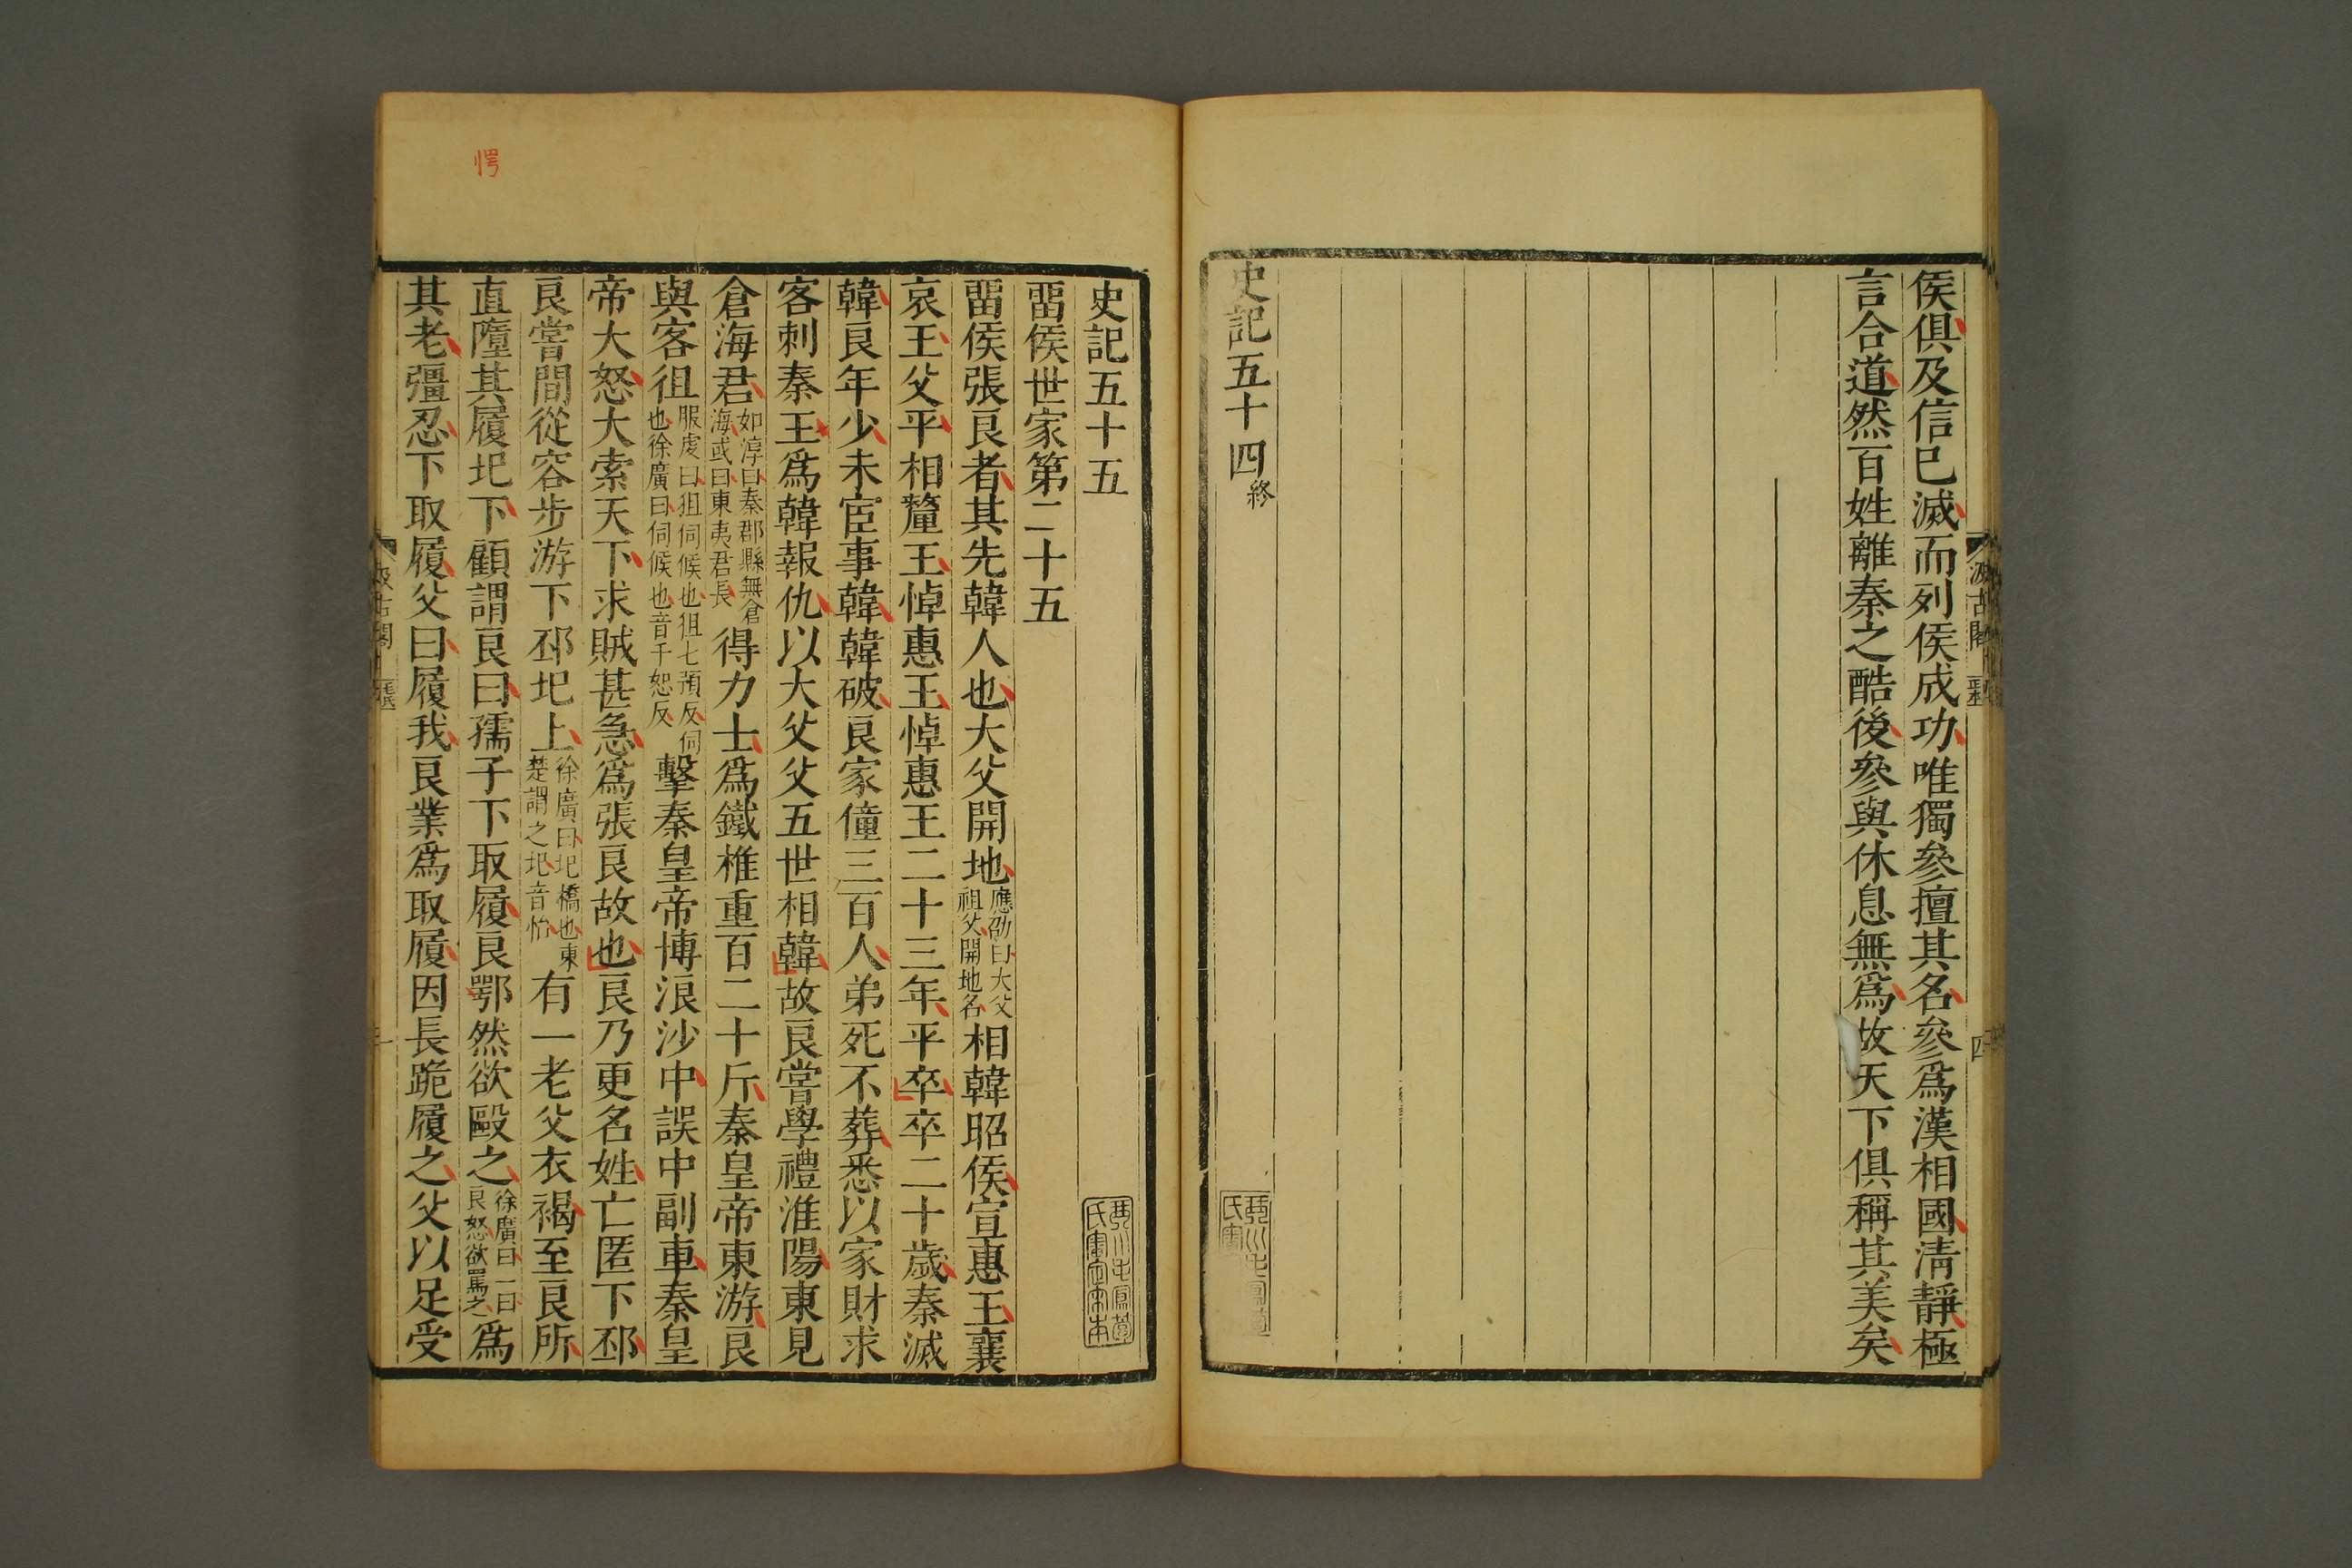 侯俱及信已滅而列侯成功唯獨參擅其名參爲漢相國清靜極
言合道然百姓離秦之酷後參與休息無爲故天下俱稱其美矣
史記五十四終
史記五十五
畱侯世家第二十五
畱侯張良者其先韓人也大父開地應劭曰大父祖父開地名相韓昭侯宣惠王襄
哀王父平相釐王悼惠王悼惠王二十三年平卒卒二十歲秦滅
韓良年少未宦事韓韓破良家僮三百人弟死不葬悉以家財求
客刺秦王爲韓報仇以大父父五世相韓故良嘗學禮淮陽東見
倉海君如淳曰秦郡縣無倉海或曰東夷君長得力士爲鐵椎重百二十斤秦皇帝東游良
與客狙服虔曰狙伺候也狙七預反伺也徐廣曰伺候也音千恕反擊秦皇帝博浪沙中誤中副車秦皇
帝大怒大索天下求賊甚急爲張良故也良乃更名姓亡匿下邳
良嘗間從容步游下邳圯上徐廣曰圯橋也東楚謂之圯音怡有一老父衣褐至良所
直墮其履圯下顧謂良曰孺子下取履良鄂然欲毆之徐廣曰一曰良怒欲罵之爲
其老彊忍下取履父曰履我良業爲取履因長跪履之父以足受
愕
汲古閣